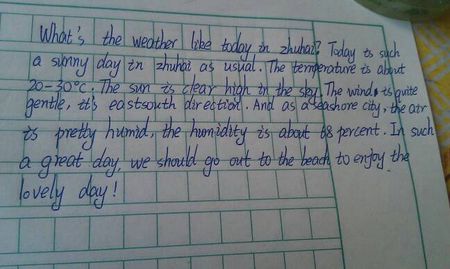 What's the weather like today in zhuhai? Today is such
a sunny day in zhuhai as usual. The temperature is about
20-30°C. The sun is clear high in the sky. The wind is quite
gentle, it's eastsouth direction. And as a seashore city, the air
is pretty humid, the humidity is about 68 percent. In such
a great day, we should go out to the beach to enjoy the
lovely day!